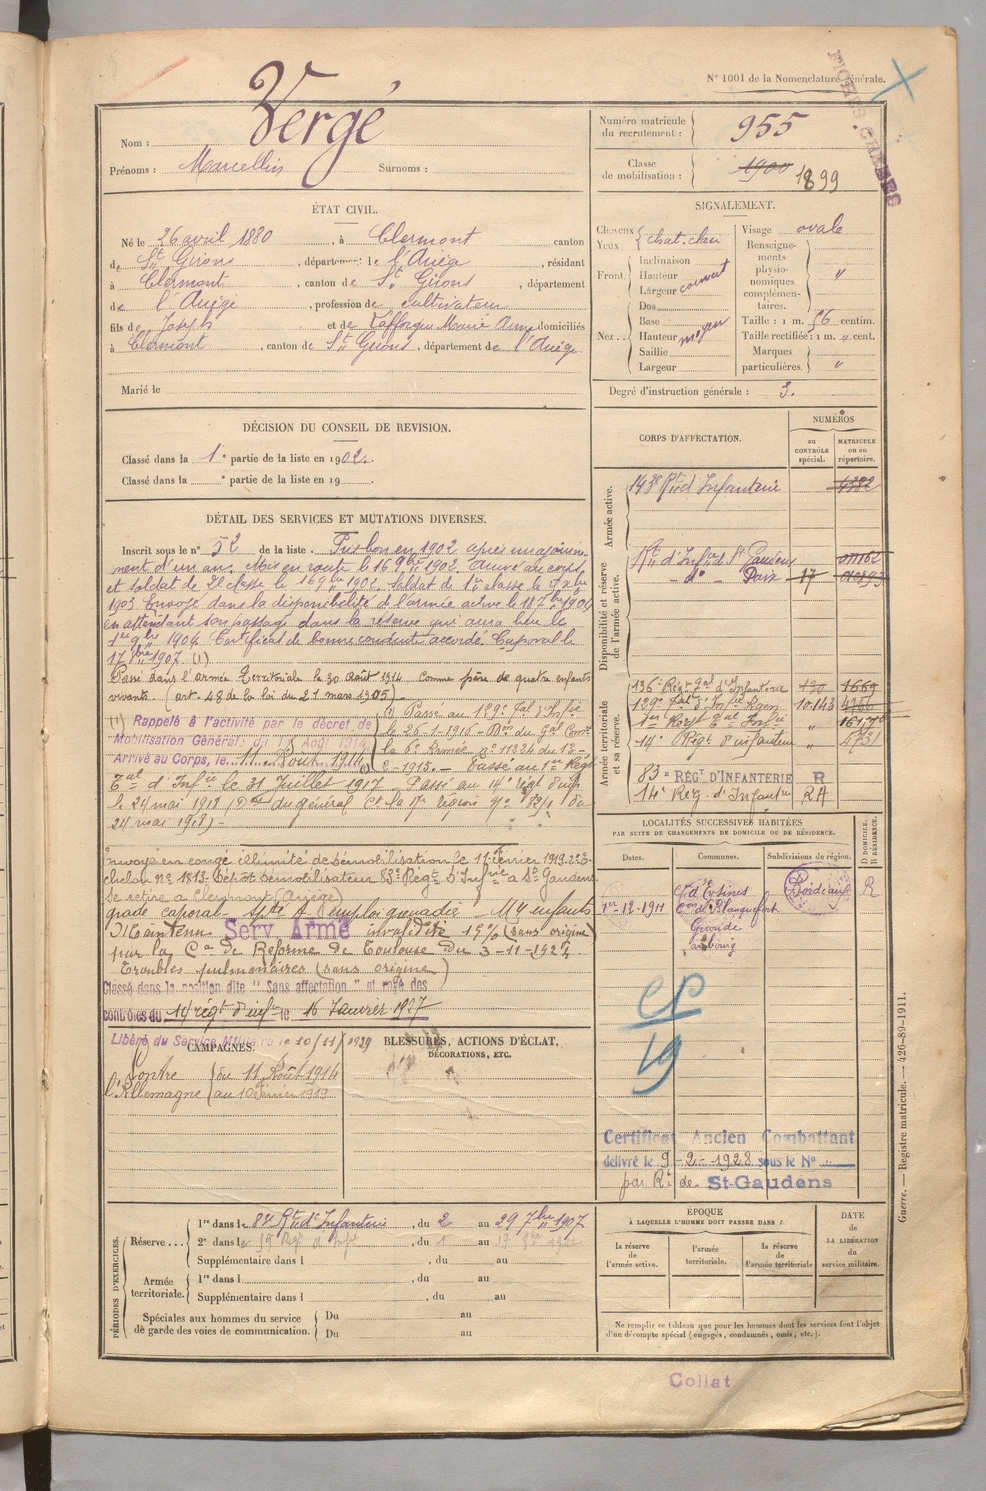 N° 1001 de la Nomenclature générale.
FICHES CREEES
Nom : Vergé
Prénoms : Marcellin Surnoms :
Numéro matricule du recrutement : 955
Classe de mobilisation : 1900 1899
ÉTAT CIVIL.
Né le 26 avril 1880, à Clermont canton
de St Girons, département de l'Ariège, résidant
à Clermont, canton de St Girons, département
de l'Ariège, profession de cultivateur
fils de Joseph et de Lafforgue Marie Anne domiciliés
à Clermont, canton de St Girons, département de l'Ariège
Marié le
SIGNALEMENT.
Cheveux
Yeux
chat. clair
Front.
Inclinaison
Hauteur
Largeur
couvert
Nez..
Dos
Base
Hauteur moyen
Saillie
Largeur
Visage ovale
Renseignements physionomiques complémentaires. "
Taille : 1 m. 56 centim.
Taille rectifiée : 1 m. " cent.
Marques particulières. "
Degré d'instruction générale : 3.
DÉCISION DU CONSEIL DE REVISION.
Classé dans la 1e partie de la liste en 1902.
Classé dans la e partie de la liste en 19
CORPS D'AFFECTATION.
NUMÉROS
au CONTRÔLE spécial.
MATRICULE ou au répertoire.
Armée active.
143e Rt d'Infanterie 4382
Disponibilité et réserve de l'armée active.
Rt d'Infie de St Gaudens
- do - 17
Armée territoriale et sa réserve.
136e Régt Tal d'Infanterie 130 1669
139e Tal d'Infie 10143
1er Régt Tal Infie "
14e Régt d'infanterie "
83e RÉGT D'INFANTERIE R
14e Rég. d'Infantie RA
DÉTAIL DES SERVICES ET MUTATIONS DIVERSES.
Inscrit sous le n° 52 de la liste. Pris bon en 1902 après un ajourne-
ment d'un an. Mis en route le 16 9bre 1902. Arrivé au corps
et soldat de 2e classe le 16 9bre 1902. Soldat de 1re classe le
1903 Envoyé dans la disponibilité de l'armée active le 18 7bre 1904
en attendant son passage dans la réserve qui aura lieu le
1er 9bre 1904. Certificat de bonne conduite accordé. Caporal le
17 7bre 1907. (1)
Passé dans l'armée Territoriale le 30 Août 1914 Comme père de quatre enfants
vivants. (art. 48 de la loi du 21 mars 1905)
(1) Rappelé à l'activité par le décret de
Mobilisation Générale du 1er Août 1914
Arrivé au Corps, le 11 Août 1914
Passé au 139e Tal d'Infie
le 26-1-1916 - Don du Gal Comt
la 6e Armée n° 11224 du 12-
2-1915. - Passé au 1er Régt
Tal d'Infie le 31 Juillet 1917 Passé au 14e régt d'inf.
le 24 mai 1918 (Don du général Ct la 17e légion
24 mai 1918)
Envoyé en congé illimité de démobilisation le 11 février 1919 2e E-
chelon n° 1813. Dépôt démobilisateur 83e Régt d'Infrie à St Gaudens
Se retire à Clermont (Ariège)
grade caporal - apte à l'emploi grenadier - M 4 enfants
Maintenu Serv. Armé invalidité 15% (sans origine)
par la Con de Réforme de Toulouse du 3-11-1927
Troubles pulmonaires (sans origine)
Classé dans la position dite " Sans affectation " et rayé des
contrôles du 14 régt d'infie le 16 Janvier 1927
Libéré du Service Militaire le 10/11/1929
LOCALITÉS SUCCESSIVES HABITÉES
PAR SUITE DE CHANGEMENTS DE DOMICILE OU DE RÉSIDENCE.
Dates. Communes. Subdivisions de région. D DOMICILE. R RÉSIDENCE.
1er-12-1911 Ct d'Eysines Con de Blanquefort Gironde au bourg Bordeaux R
CP
19
CAMPAGNES.
Contre l'Allemagne
du 11 Août 1914
au 10 février 1919
BLESSURES, ACTIONS D'ÉCLAT, DÉCORATIONS, ETC.
Certificat Ancien Combattant
délivré le 9-2-1928 sous le N° "
par Rt de St-Gaudens
PÉRIODES D'EXERCICES.
Réserve...
1re dans le Rt d'Infanterie, du 2 au 29 7bre 1907
2e dans le 59 Régt d'Infie, du 1 au 17
Supplémentaire dans l, du au
Armée territoriale.
1re dans l, du au
Supplémentaire dans l, du au
Spéciales aux hommes du service de garde des voies de communication.
Du au
Du au
ÉPOQUE
À LAQUELLE L'HOMME DOIT PASSER DANS :
la réserve de l'armée active.
l'armée territoriale.
la réserve de l'armée territoriale
DATE de LA LIBÉRATION du service militaire.
Ne remplir ce tableau que pour les hommes dont les services font l'objet
d'un décompte spécial (engagés, condamnés, omis, etc.).
Guerre. — Registre matricule. — 426-89-1911.
Collat